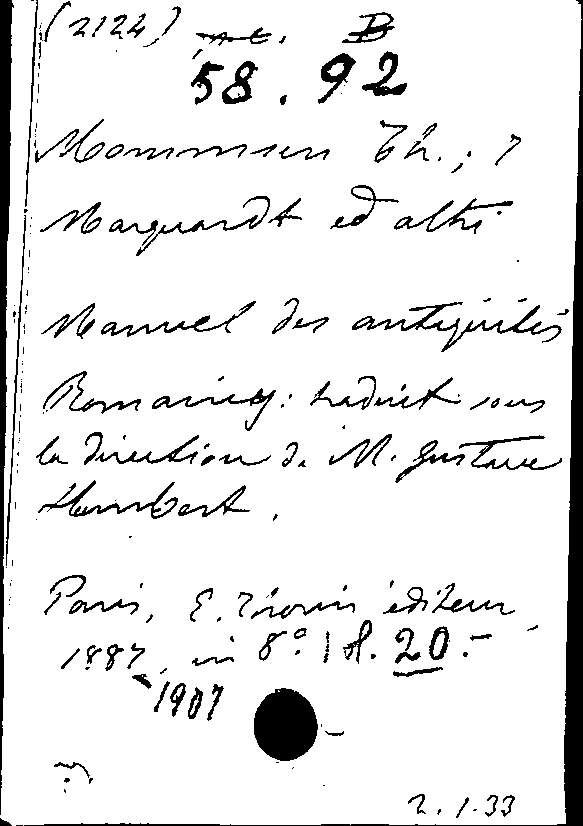 (2124) B
58.92
Mommsen Th.;
Marquardt ed altri
Manuel des antiquités
Romaines: traduit sous
la direction de M. Gustave
Humbert.
Paris, E. Thorin éditeur
1887, in 8°
20.-
-1907
2.1.33